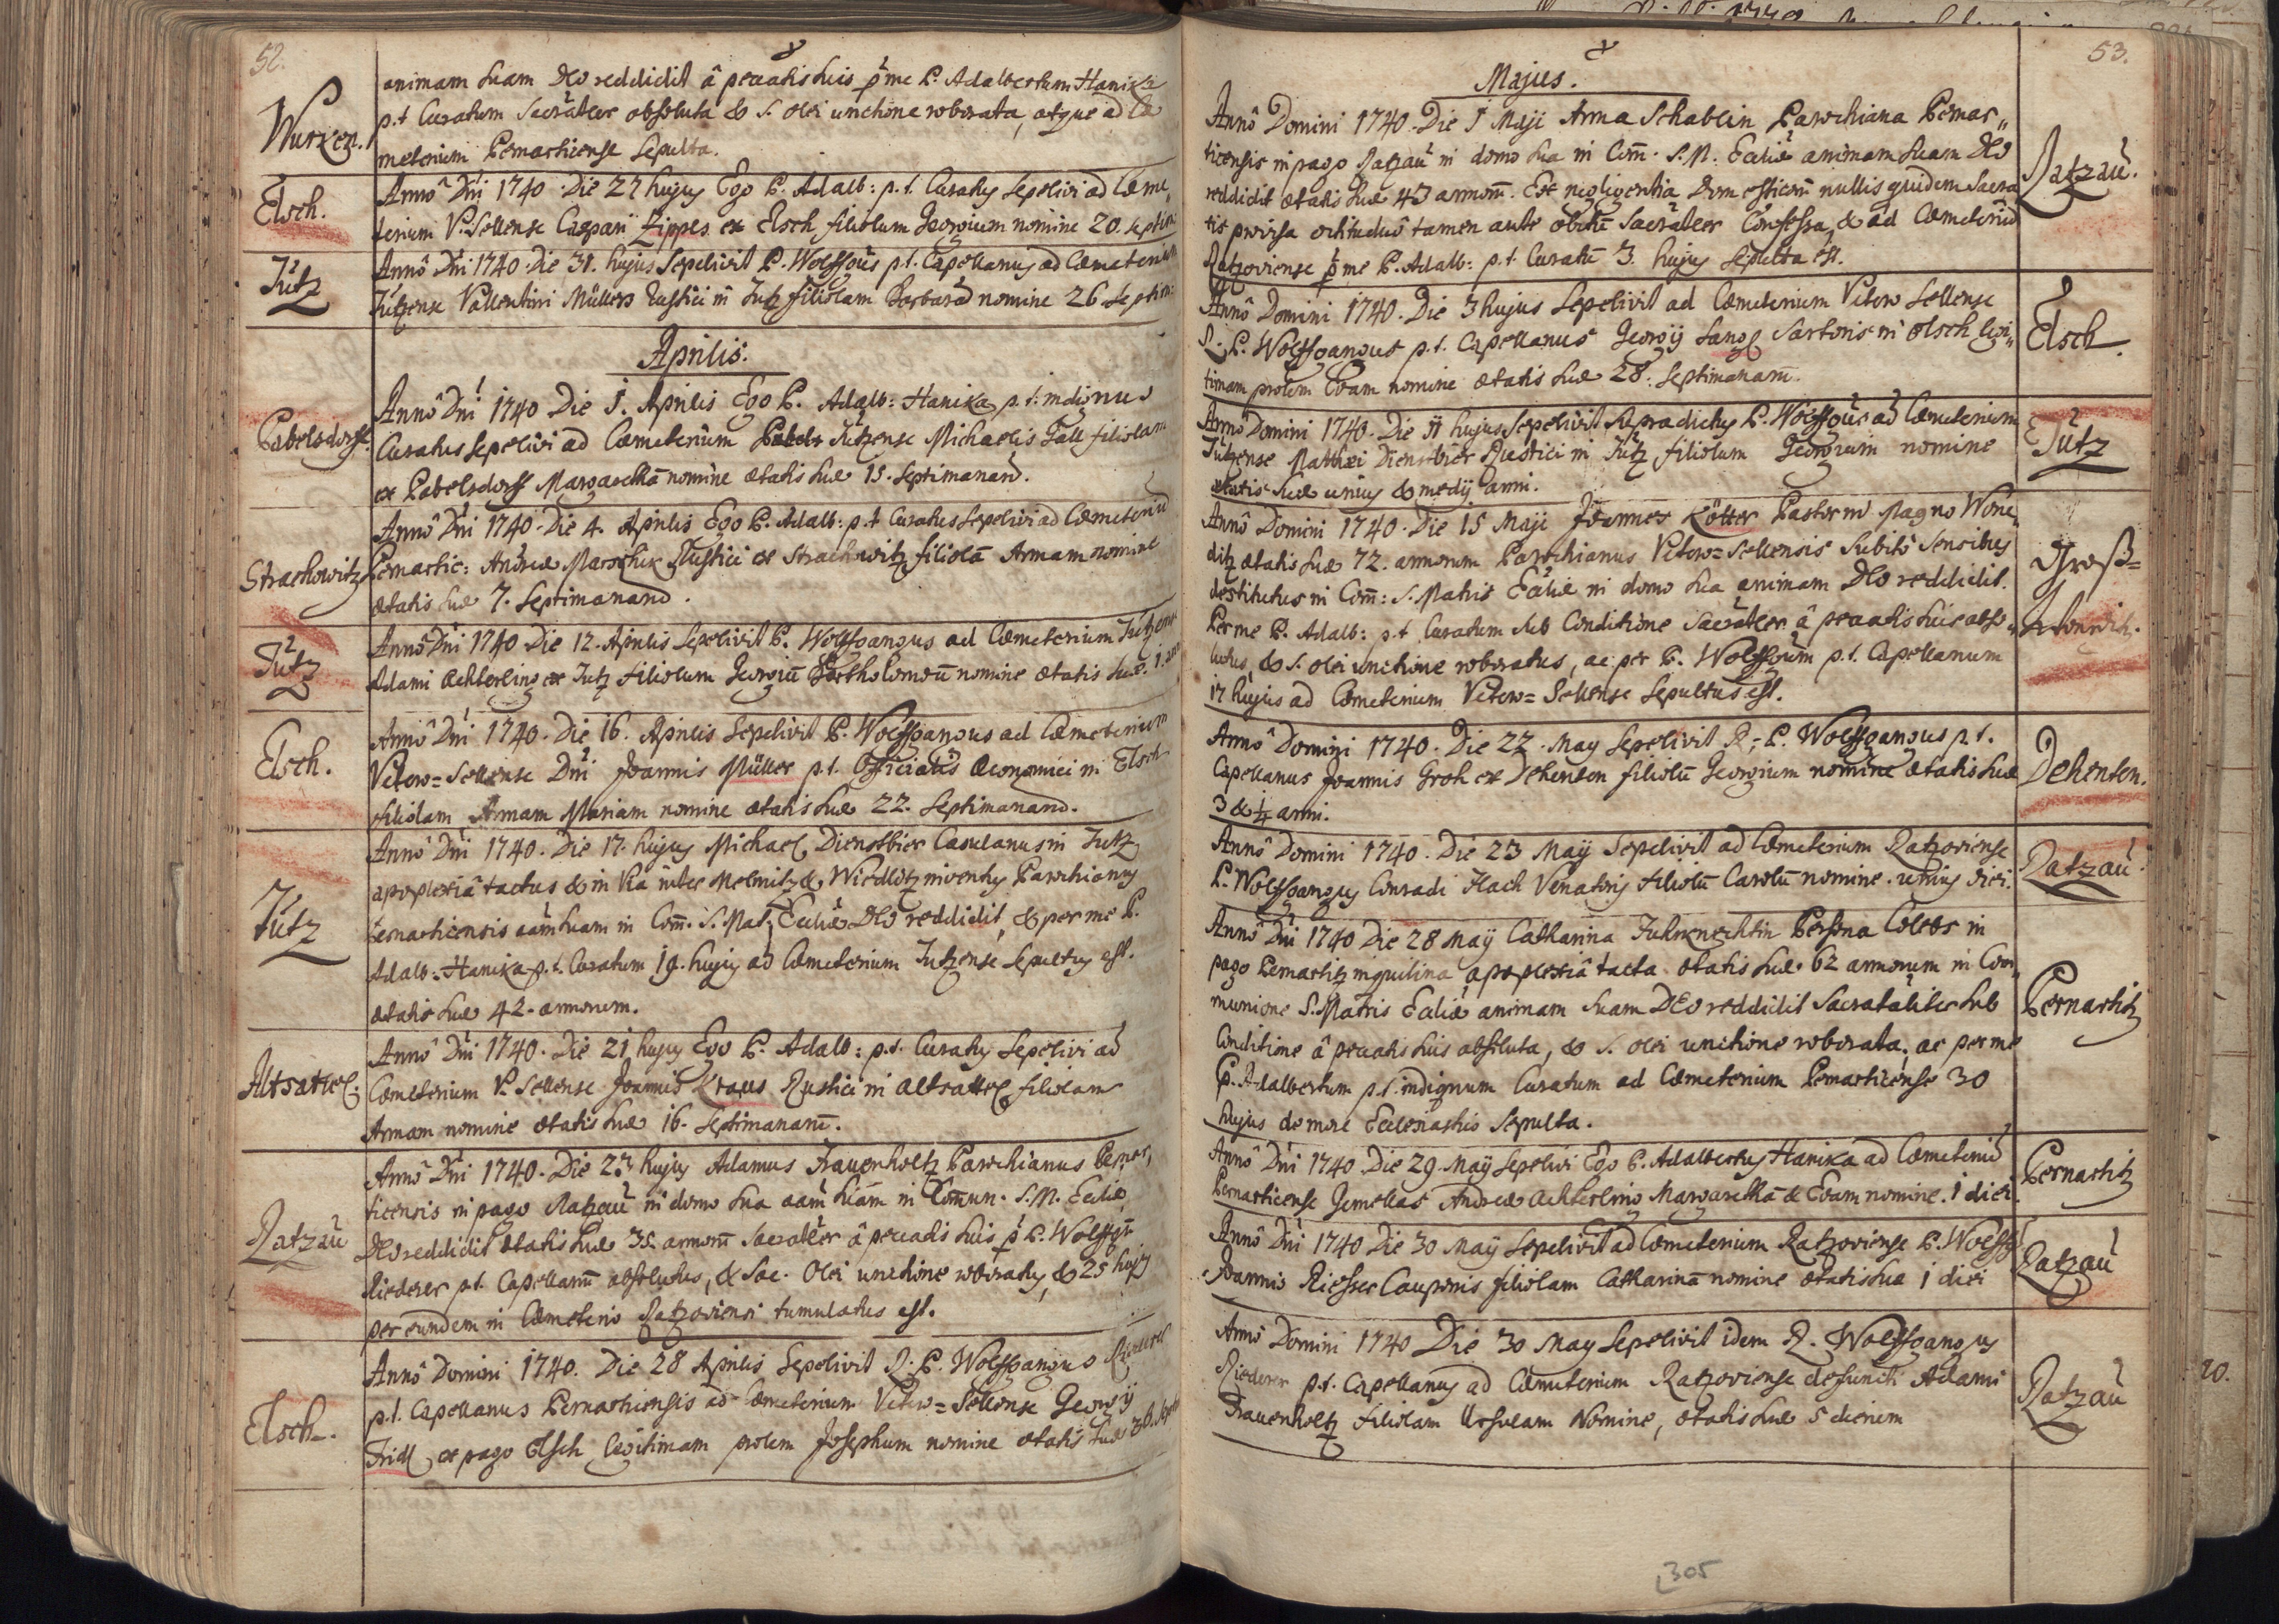 52.
Wurken.
animam suam Deo reddidit â peccatis suis p me P. Adalbertum Hanika
p.t. Curatum Sacrãliter absoluta & S. olei unctione roborata, atque ad Cæ
meterium Pernarticense sepulta.
Elsch.
Annô Dni 1740 Die 27 hujus Ego P. Adalb: p.t. Curatus sepelivi ad Cæme„
terium V. Sellense Caspari Zippes ex Elsch filiolum Georgium nomine 20. septim:
Jutz
Annô Dni 1740. Die 31. hujus sepelivit P. Wolffgus p.t. Capellanus ad Cæmeterium
Jutzense Vallentini Müllers Rustici in Jutz filiolam Barbarã nomine 26 septim:
Aprilis.
Pabelsdorff.
Annô Dni 1740 Die 1. Aprilis Ego P. Adalb: Hanika p.t. indignus
Curatus sepelivi ad Cæmeterium Jutzense Michaelis Fall filiolam
ex Pabelsdorff Margarethã nomine ætatis suæ 15. septimanarũ.
Strachowitz
Annô Dni 1740. Die 4. Aprilis Ego P. Adalb: p.t. Curatus sepelivi ad Cæmeteriũ
Pernartic: Andreæ Marschik Rustici ex Strachowitz filiolã Annam nomine
ætatis suæ 7. septimanarũ.
Jutz
Annô Dni 1740 Die 12. Aprilis sepelivit P. Wolffgangus ad Cæmeterium Jutzense
Adami Achterling ex Jutz filiolum Georgiũ Bartholomæũ nomine ætatis suæ. 1.
Elsch.
Annô Dni 1740. Die 16. Aprilis sepelivit P. Wolffgangus ad Cæmeterium
Vetero=Sellense Dni Joannis Müller p.t. Officialis Œconomici in Elsch
filiolam Annam Mariam nomine ætatis suæ 22. septimanarũ.
Jutz
Annô Dni 1740. Die 17. hujus Michael Dienstbier Casulanus in Jutz
apoplexiâ tactus & in via inter Melnitz & Wiedlitz inventus Parochianus
Pernarticensis aãm suam in Com̃. S. Mat: Eccliæ Deo reddidit, & per me P.
Adalb: Hanika p.t. Curatum 19. hujus ad Cæmeterium Jutzense sepultus est.
ætatis suæ 42. annorum.
Altsattel.
Annô Dni 1740. Die 21 hujus Ego P. Adalb: p.t. Curatus sepelivi ad
Cæmeterium V. Sellense Joannis Kraus Rustici in Altsattel filiolam
Annam nomine ætatis suæ 16. septimanarũ.
Ratzau
Annô Dni 1740. Die 23 hujus Adamus Frauenholtz Parochianus Pernar„
ticensis in pago Ratzau in domo sua aãm suãm in Com̃un. S. M. Eccliæ
Deo reddidit ætatis suæ 35. annorũ Sacrãliter â peccatis suis p P. Wolffgũ
Riederer p.t. Capellanũ absolutus, & Sac. Olei unctione roboratus, & 25 hujus
per eundem in Cæmeterio Ratzoviensi tumulatus est.
Elsch.
Annô Domini 1740. Die 28 Aprilis sepelivit R. P. Wolffgangus Riederer
p.t. Capellanus Pernarticensis ad Cæmeterium Vetero=Sellense Georgij
Fridl ex pago Elsch legitimam prolem Josephum nomine ætatis suæ 36.
53.
Majus.
Annô Domini 1740. Die 1 Maji Anna Schablin Parochiana Pernar„
ticensis in pago Ratzau in domo sua in Com̃. S. M. Eccliæ animam suam Deo
reddidit ætatis suæ 43 annorũ. Ex negligentia Domesticorũ nullis quidem Sacra„
tis provisa octiduô tamen ante obitũ Sacrãliter Confessa, & ad Cæmeteriũ
Ratzoviense p me P. Adalb: p.t. Curatũ 3. hujus sepulta est.
Ratzau.
Annô Domini 1740. Die 3 hujus sepelivit ad Cæmeterium Vetero Sellense
R. P. Wolffgangus p.t. Capellanus Georgij Lang Sartoris in Elsch legi„
timam prolem Evam nomine ætatis suæ 28. septimanarũ.
Elsch.
Annô Domini 1740. Die 11 hujus sepelivit supradictus P. Wolffgus ad Cæmeterium
Jutzense Matthæi Dienstbier Rustici in Jutz filiolum Georgium nomine
ætatis suæ unius & medij anni.
Jutz
Annô Domini 1740. Die 15 Maji Joannes Kötter Pastor in Magno Wone„
ditz ætatis suæ 72. annorum Parochianus Vetero=Sellensis subitô sensibus
destitutus in Com̃: S. Matris Eccliæ in domo sua animam Deo reddidit.
Per me P. Adalb: p.t. Curatum sub Conditione Sacrãliter â peccatis suis abso„
lutus, & S. olei unctione roboratus, ac per P. Wolffgum p.t. Capellanum
17 hujus ad Cæmeterium Vetero=Sellense sepultus est.
Groß=
Annô Domini 1740. Die 22. May sepelivit R. P. Wolffgangus p.t.
Capellanus Joannis Groh ex Dehenten filiolũ Georgium nomine ætatis suæ
3 & 1/4 anni.
Dehenten.
Annô Domini 1740. Die 23 Maij sepelivit ad Cæmeterium Ratzoviense
P. Wolffgangus Conradi Hach Venatoris filiolũ Carolũ nomine. unius diei.
Ratzau.
Annô Dni 1740 Die 28 Maij Catharina Fuhrknechtin Persona Coelebs in
pago Pernartitz inquilina apoplexiâ tacta ætatis suæ 62 annorum in Com„
munione S. Matris Eccliæ animam suam Deo reddidit Sacramẽtaliter sub
Conditione â peccatis suis absoluta, & S. olei unctione roborata, ac per me
P. Adalbertum p.t. indignum Curatum ad Cæmeterium Pernarticense 30
hujus de more Ecclesiastico sepulta.
Pernartitz
Annô Dni 1740 Die 29. Maij sepelivi Ego P. Adalbertus Hanika ad Cæmeteriũ
Pernarticense Gemellas Andreæ Achterling Margarethã & Evam nomine. 1 diei.
Pernartitz
Annô Dni 1740 Die 30 Maij sepelivit ad Cæmeterium Ratzoviense P. Wolffg:
Joannis Riesser Cauponis filiolam Catharinã nomine ætatis suæ 1 diei
Ratzau
Annô Domini 1740 Die 30 May sepelivit idem R. Wolffgangus
Riederer p.t. Capellanus ad Cæmeterium Ratzoviense defuncti Adami
Frauenholtz filiolam Ursulam Nomine, ætatis suæ 5 dierum
Ratzau
20.
305